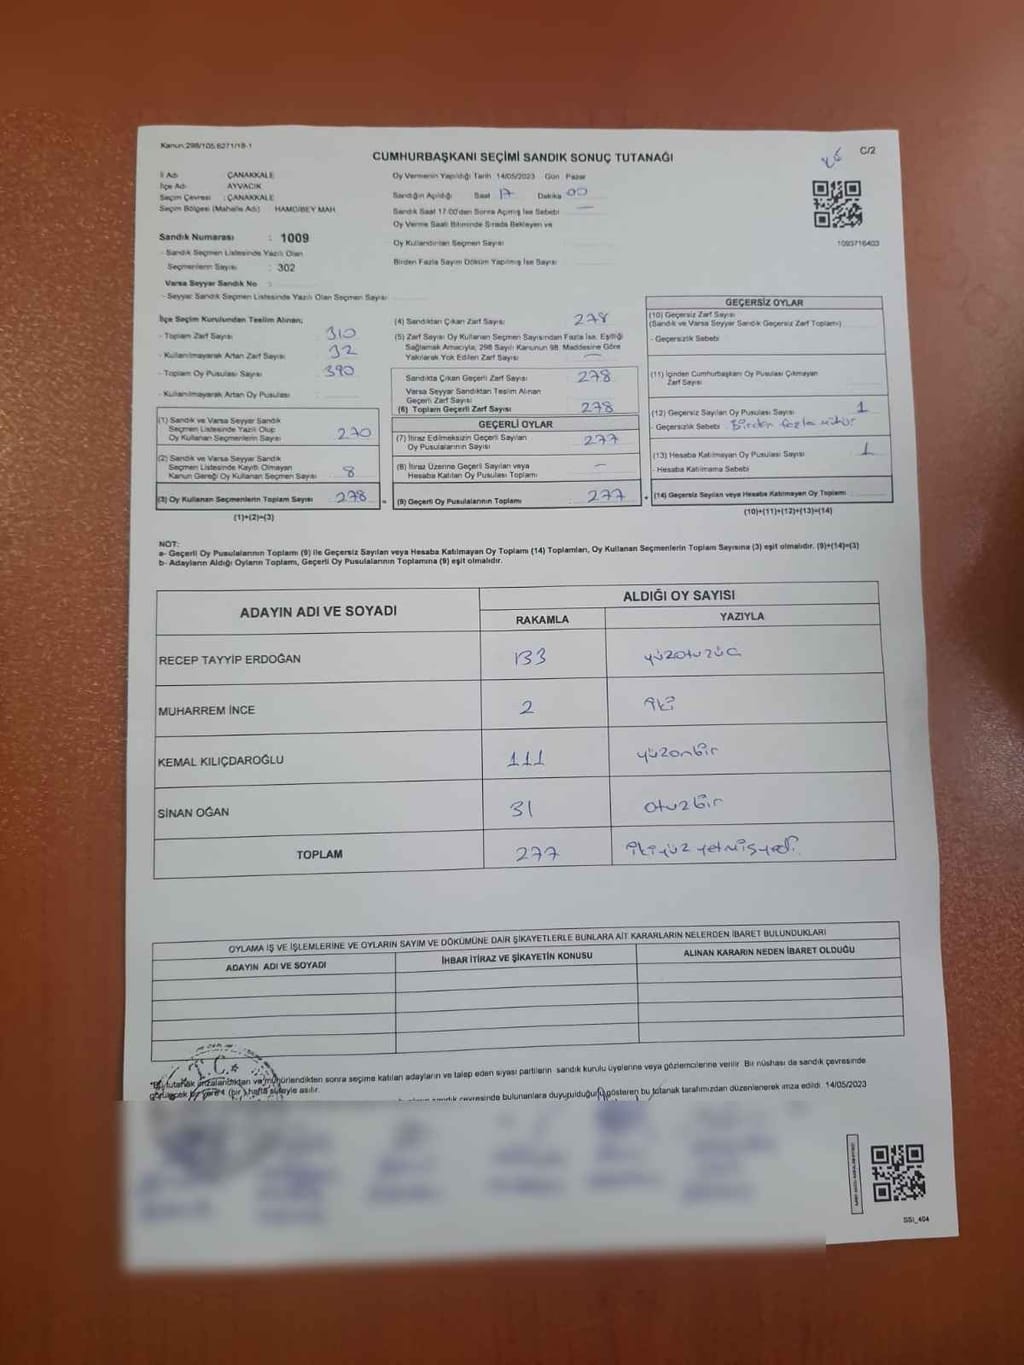 Kanun:298/105,6271/18-1
CUMHURBAŞKANI SEÇİMİ SANDIK SONUÇ TUTANAĞI
C/2
İl Adı : ÇANAKKALE
İlçe Adı : AYVACIK
Seçim Çevresi : ÇANAKKALE
Seçim Bölgesi (Mahalle Adı) : HAMDİBEY MAH.
Oy Vermenin Yapıldığı Tarih 14/05/2023 Gün Pazar
Sandığın Açıldığı Saat 17 Dakika 00
Sandık Saat 17:00'den Sonra Açılmış İse Sebebi —
Oy Verme Saati Bitiminde Sırada Bekleyen ve
Oy Kullandırılan Seçmen Sayısı
Birden Fazla Sayım Döküm Yapılmış İse Sayısı
1093716403
Sandık Numarası : 1009
- Sandık Seçmen Listesinde Yazılı Olan
Seçmenlerin Sayısı : 302
Varsa Seyyar Sandık No
- Seyyar Sandık Seçmen Listesinde Yazılı Olan Seçmen Sayısı
İlçe Seçim Kurulundan Teslim Alınan;
- Toplam Zarf Sayısı 310
- Kullanılmayarak Artan Zarf Sayısı 32
- Toplam Oy Pusulası Sayısı 390
- Kullanılmayarak Artan Oy Pusulası
(1) Sandık ve Varsa Seyyar Sandık
Seçmen Listesinde Yazılı Olup
Oy Kullanan Seçmenlerin Sayısı 270
(2) Sandık ve Varsa Seyyar Sandık
Seçmen Listesinde Kayıtlı Olmayan
Kanun Gereği Oy Kullanan Seçmen Sayısı 8
(3) Oy Kullanan Seçmenlerin Toplam Sayısı 278
(1)+(2)=(3)
(4) Sandıktan Çıkan Zarf Sayısı 278
(5) Zarf Sayısı Oy Kullanan Seçmen Sayısından Fazla İse, Eşitliği
Sağlamak Amacıyla, 298 Sayılı Kanunun 98. Maddesine Göre
Yakılarak Yok Edilen Zarf Sayısı —
Sandıkta Çıkan Geçerli Zarf Sayısı 278
Varsa Seyyar Sandıktan Teslim Alınan
Geçerli Zarf Sayısı
(6) Toplam Geçerli Zarf Sayısı 278
GEÇERLİ OYLAR
(7) İtiraz Edilmeksizin Geçerli Sayılan
Oy Pusulalarının Sayısı 277
(8) İtiraz Üzerine Geçerli Sayılan veya
Hesaba Katılan Oy Pusulası Toplamı —
= (9) Geçerli Oy Pusulalarının Toplamı 277
GEÇERSİZ OYLAR
(10) Geçersiz Zarf Sayısı
(Sandık ve Varsa Seyyar Sandık Geçersiz Zarf Toplamı)
- Geçersizlik Sebebi
(11) İçinden Cumhurbaşkanı Oy Pusulası Çıkmayan
Zarf Sayısı
(12) Geçersiz Sayılan Oy Pusulası Sayısı 1
- Geçersizlik Sebebi Birden fazla mühür
(13) Hesaba Katılmayan Oy Pusulası Sayısı 1
Hesaba Katılmama Sebebi
+ (14) Geçersiz Sayılan veya Hesaba Katılmayan Oy Toplamı
(10)+(11)+(12)+(13)=(14)
NOT:
a- Geçerli Oy Pusulalarının Toplamı (9) ile Geçersiz Sayılan veya Hesaba Katılmayan Oy Toplamı (14) Toplamları, Oy Kullanan Seçmenlerin Toplam Sayısına (3) eşit olmalıdır. (9)+(14)=(3)
b- Adayların Aldığı Oyların Toplamı, Geçerli Oy Pusulalarının Toplamına (9) eşit olmalıdır.
ADAYIN ADI VE SOYADI
ALDIĞI OY SAYISI
RAKAMLA YAZIYLA
RECEP TAYYİP ERDOĞAN 133 yüzotuzüç
MUHARREM İNCE 2 iki
KEMAL KILIÇDAROĞLU 111 yüzonbir
SİNAN OĞAN 31 otuzbir
TOPLAM 277 ikiyüz yetmişyedi
OYLAMA İŞ VE İŞLEMLERİNE VE OYLARIN SAYIM VE DÖKÜMÜNE DAİR ŞİKAYETLERLE BUNLARA AİT KARARLARIN NELERDEN İBARET BULUNDUKLARI
ADAYIN ADI VE SOYADI İHBAR İTİRAZ VE ŞİKAYETİN KONUSU ALINAN KARARIN NEDEN İBARET OLDUĞU
T.C.
*Bu tutanak imzalandıktan ve mühürlendikten sonra seçime katılan adayların ve talep eden siyasi partilerin sandık kurulu üyelerine veya gözlemcilerine verilir. Bir nüshası da sandık çevresinde
görülecek bir yere 1 (bir) hafta süreyle asılır.
sandık çevresinde bulunanlara duyurulduğunu gösteren bu tutanak tarafımızdan düzenlenerek imza edildi. 14/05/2023
SSİ_404